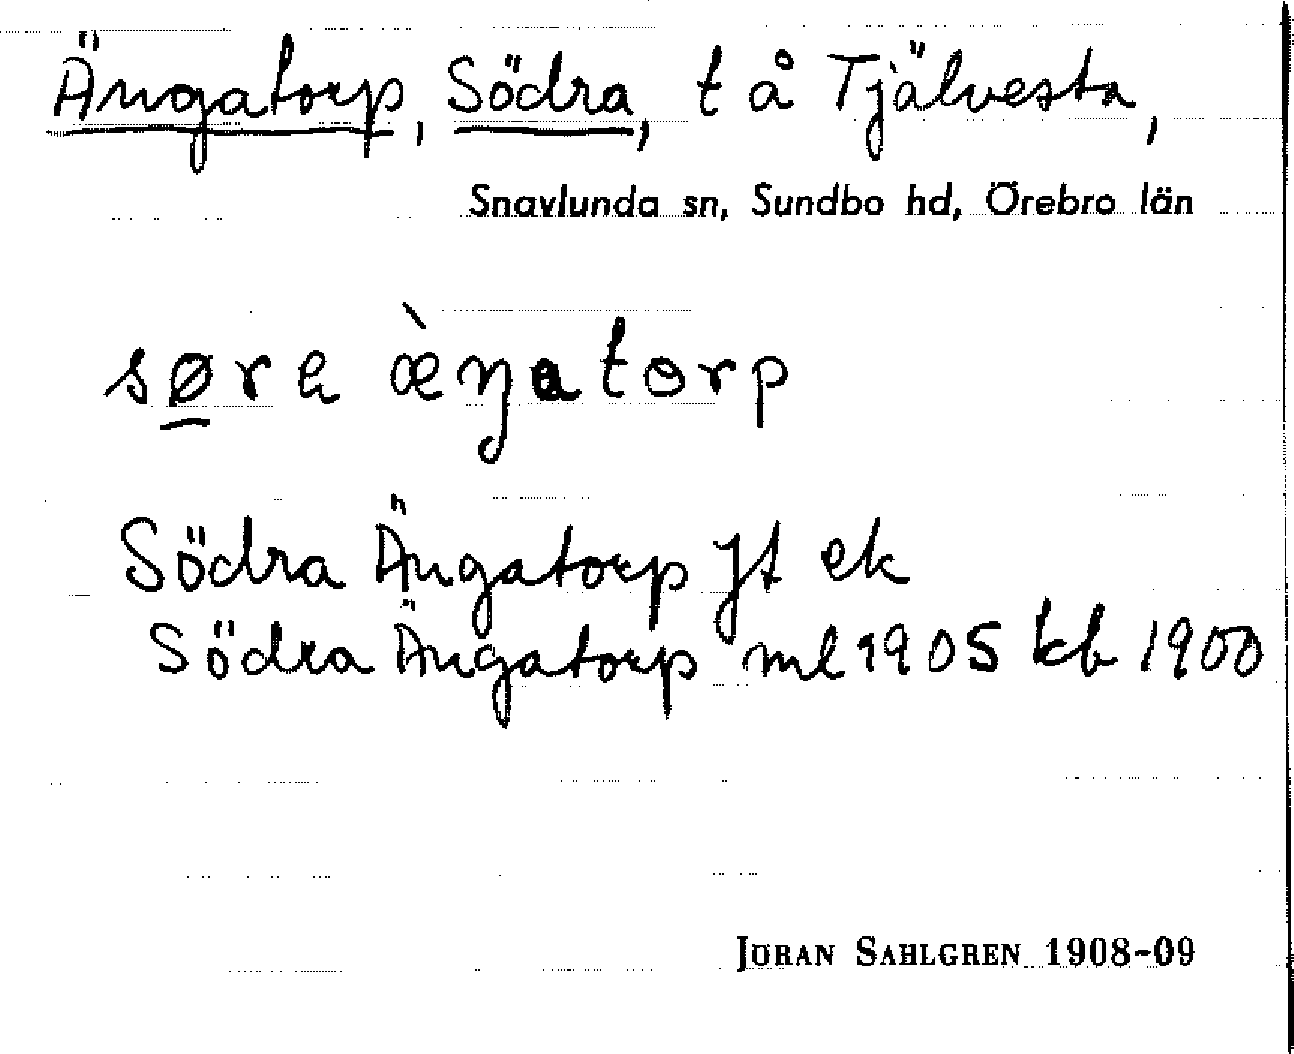 Ängatorp, Södra, t å Tjälvesta,
Snavlunda sn, Sundbo hd, Örebro län
søra æ̀ŋatorp
Södra Ängatorp Jt ek
Södra Ängatorp ml 1905 kb 1900
JÖRAN SAHLGREN 1908-09